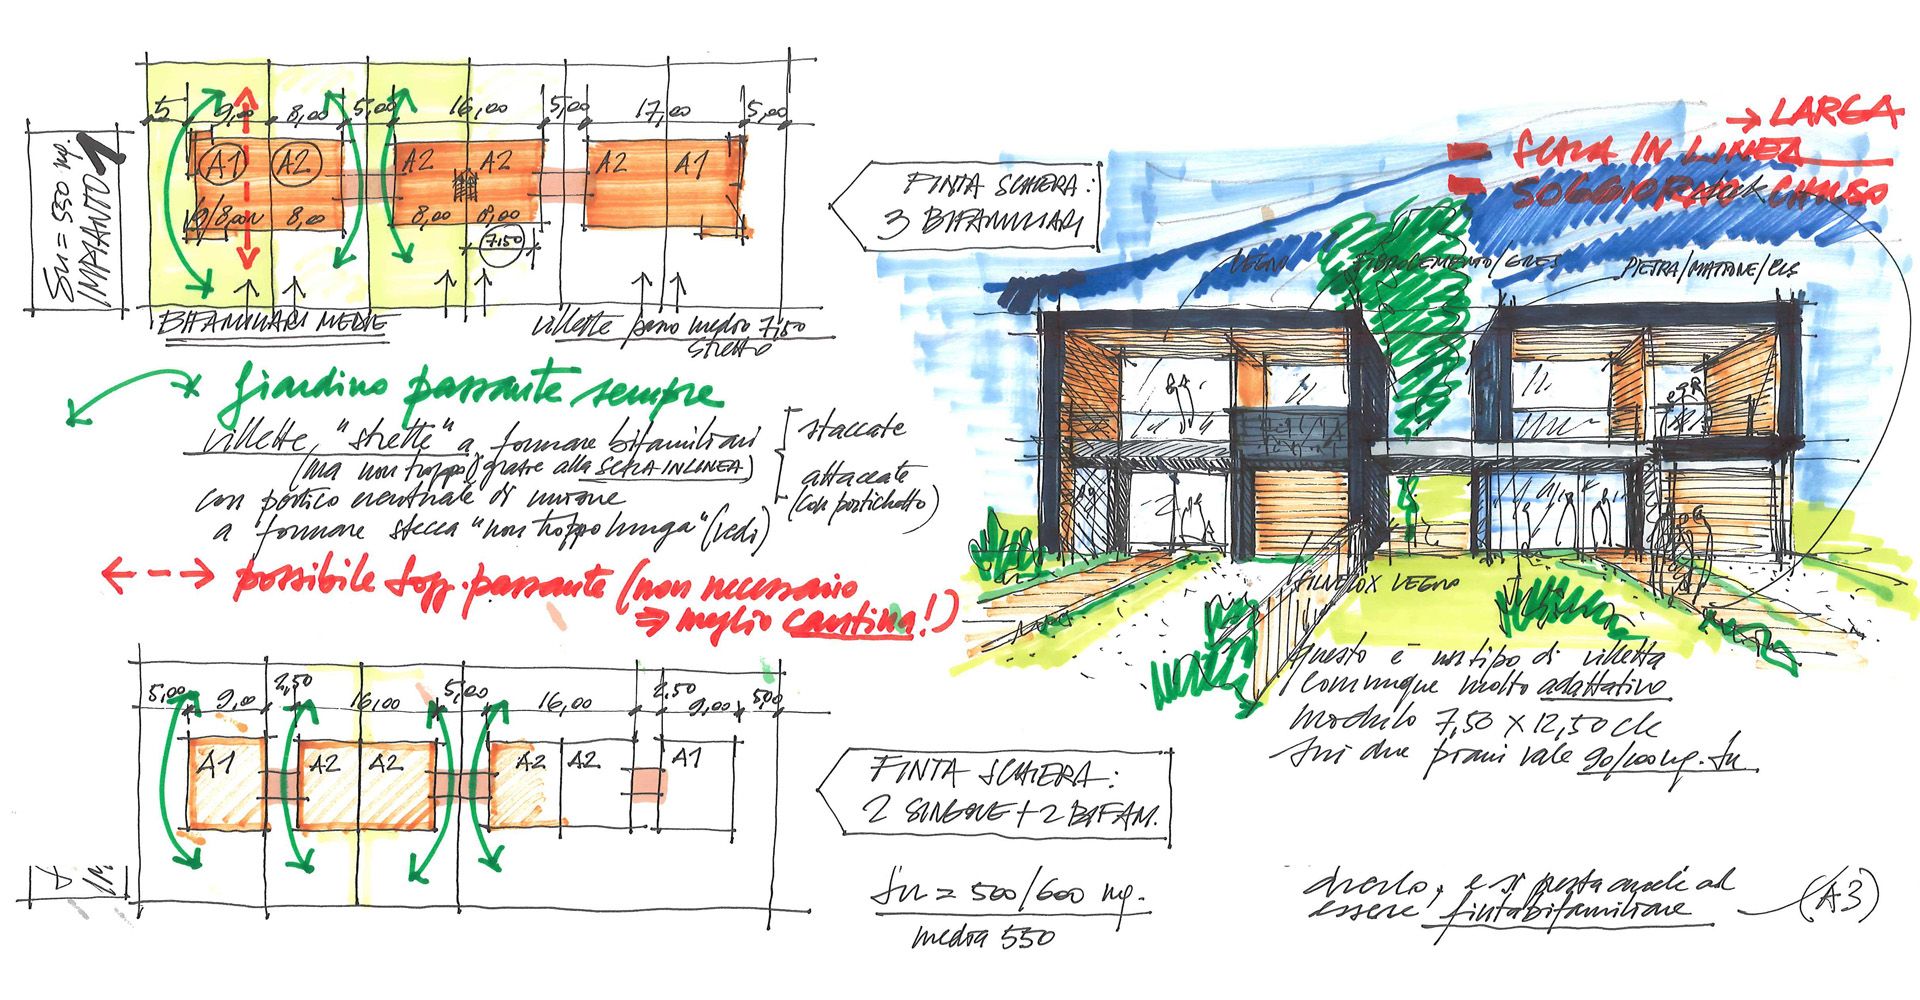 Su = 550 mq.
IMPIANTO 1
5 9,00 8,00 5,00 16,00 5,00 17,00 5,00
A1 A2 A2 A2 A2 A1
8,00 8,00 8,00 8,00
7,50
BIFAMILIARI MEDIE
villette passo medio 7,50
stretto
FINTA SCHIERA:
3 BIFAMILIARI
giardino passante sempre
villette "strette" a formare bifamiliari
(ma non troppo, grazie alla SCALA IN LINEA)
con portico eventuale di unione
a formare stecca "non troppo lunga" (vedi)
staccate
attaccate
(con portichetto)
possibile sogg. passante (non necessario
⇒ meglio cantina!)
5,00 9,00 2,50 16,00 5,00 16,00 2,50 9,00 5,00
A1 A2 A2 A2 A2 A1
FINTA SCHIERA:
2 SINGOLE + 2 BIFAM.
Su = 500/600 mq.
media 550
→ LARGA
SCALA IN LINEA
SOGGIORNO CHIUSO
LEGNO
FIBROCEMENTO/GRES
PIETRA/MATTONE/CLS
LEGNO
questo è un tipo di villetta
comunque molto adattativo
modulo 7,50 x 12,50
sui due piani vale 90/100 mq. Su
e si presta anche ad
essere finta bifamiliare
(A3)